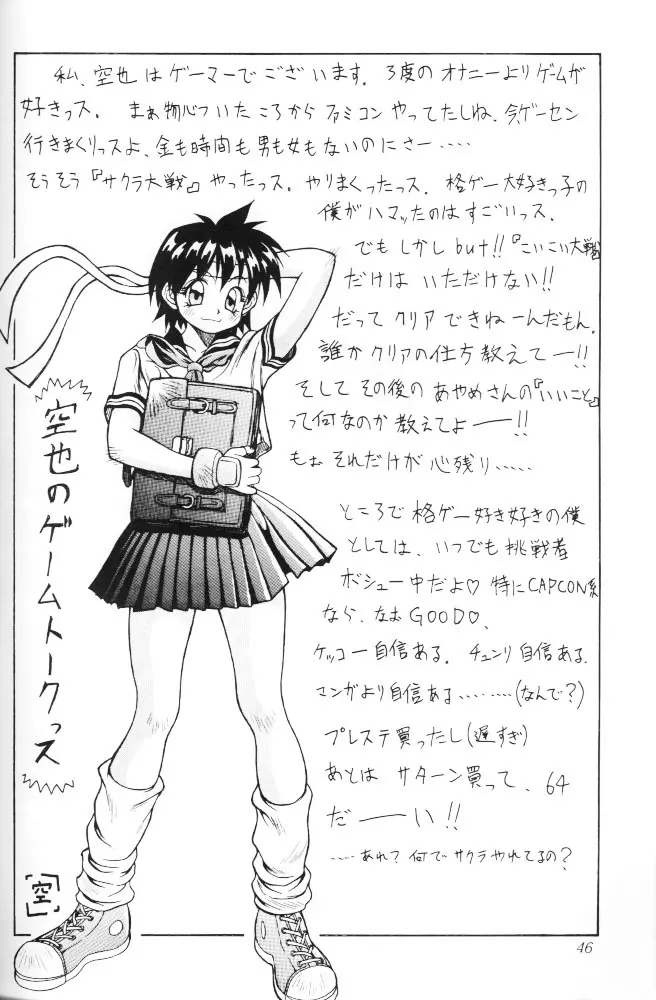 私、空也はゲーマーでございます。3度のオナニーよりゲームが
好きっス。まぁ物心ついたころからファミコンやってたしね、今、ゲーセン
行きまくりっスよ、金も時間も男も女もないのにさー‥‥‥
そうそう『サクラ大戦』やったっス。やりまくったっス。格ゲー大好きっ子の
僕がハマッたのはすごいっス。
でもしかしbut!!『こいこい大戦』
だけはいただけない!!
だってクリアできねーんだもん。
誰かクリアの仕方教えてー!!
そしてその後のあやめさんの『いいこと』
って何なのか教えてよー!!
もぉそれだけが心残り‥‥‥
ところで格ゲー好き好きの僕
としては、いつでも挑戦者
ボシュー中だよ♡ 特にCAPCON系
なら、なおGOOD♡、
ケッコー自信ある。チュンリ自信ある。
マンガより自信ある‥‥‥‥(なんで?)
プレステ買ったし(遅すぎ)
あとはサターン買って、64
だーい!!
‥‥あれ?何でサクラやれてるの?
空也のゲームトークっス
[空]
46